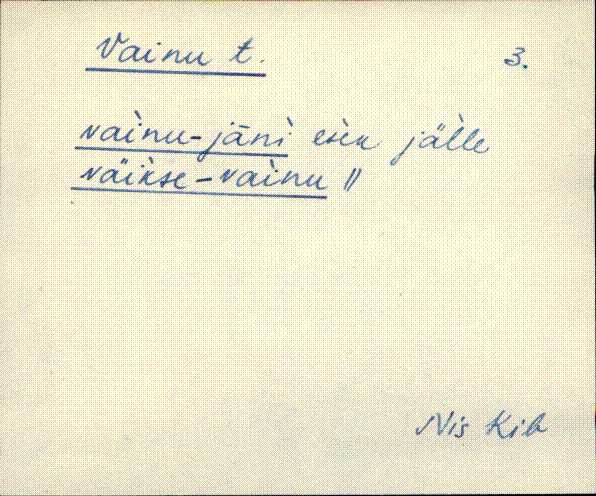 Vainu t. 3.
vàinu-jāni esìx jälle
väìkse-vàinu ||
Nis Kib